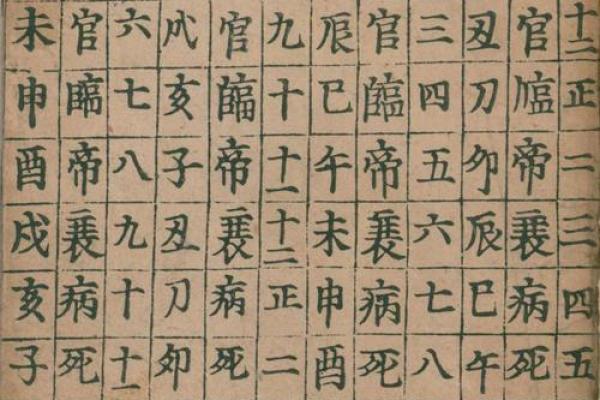 十二正二三四五
官臨帝衰病死
丑刀卯辰巳午
三四五六七八
官臨帝衰病死
辰巳午未申酉
九十十一十二正二
官臨帝衰病死
戌亥子丑刀卯
六七八九十十一
官臨帝衰病死
未申酉戌亥子